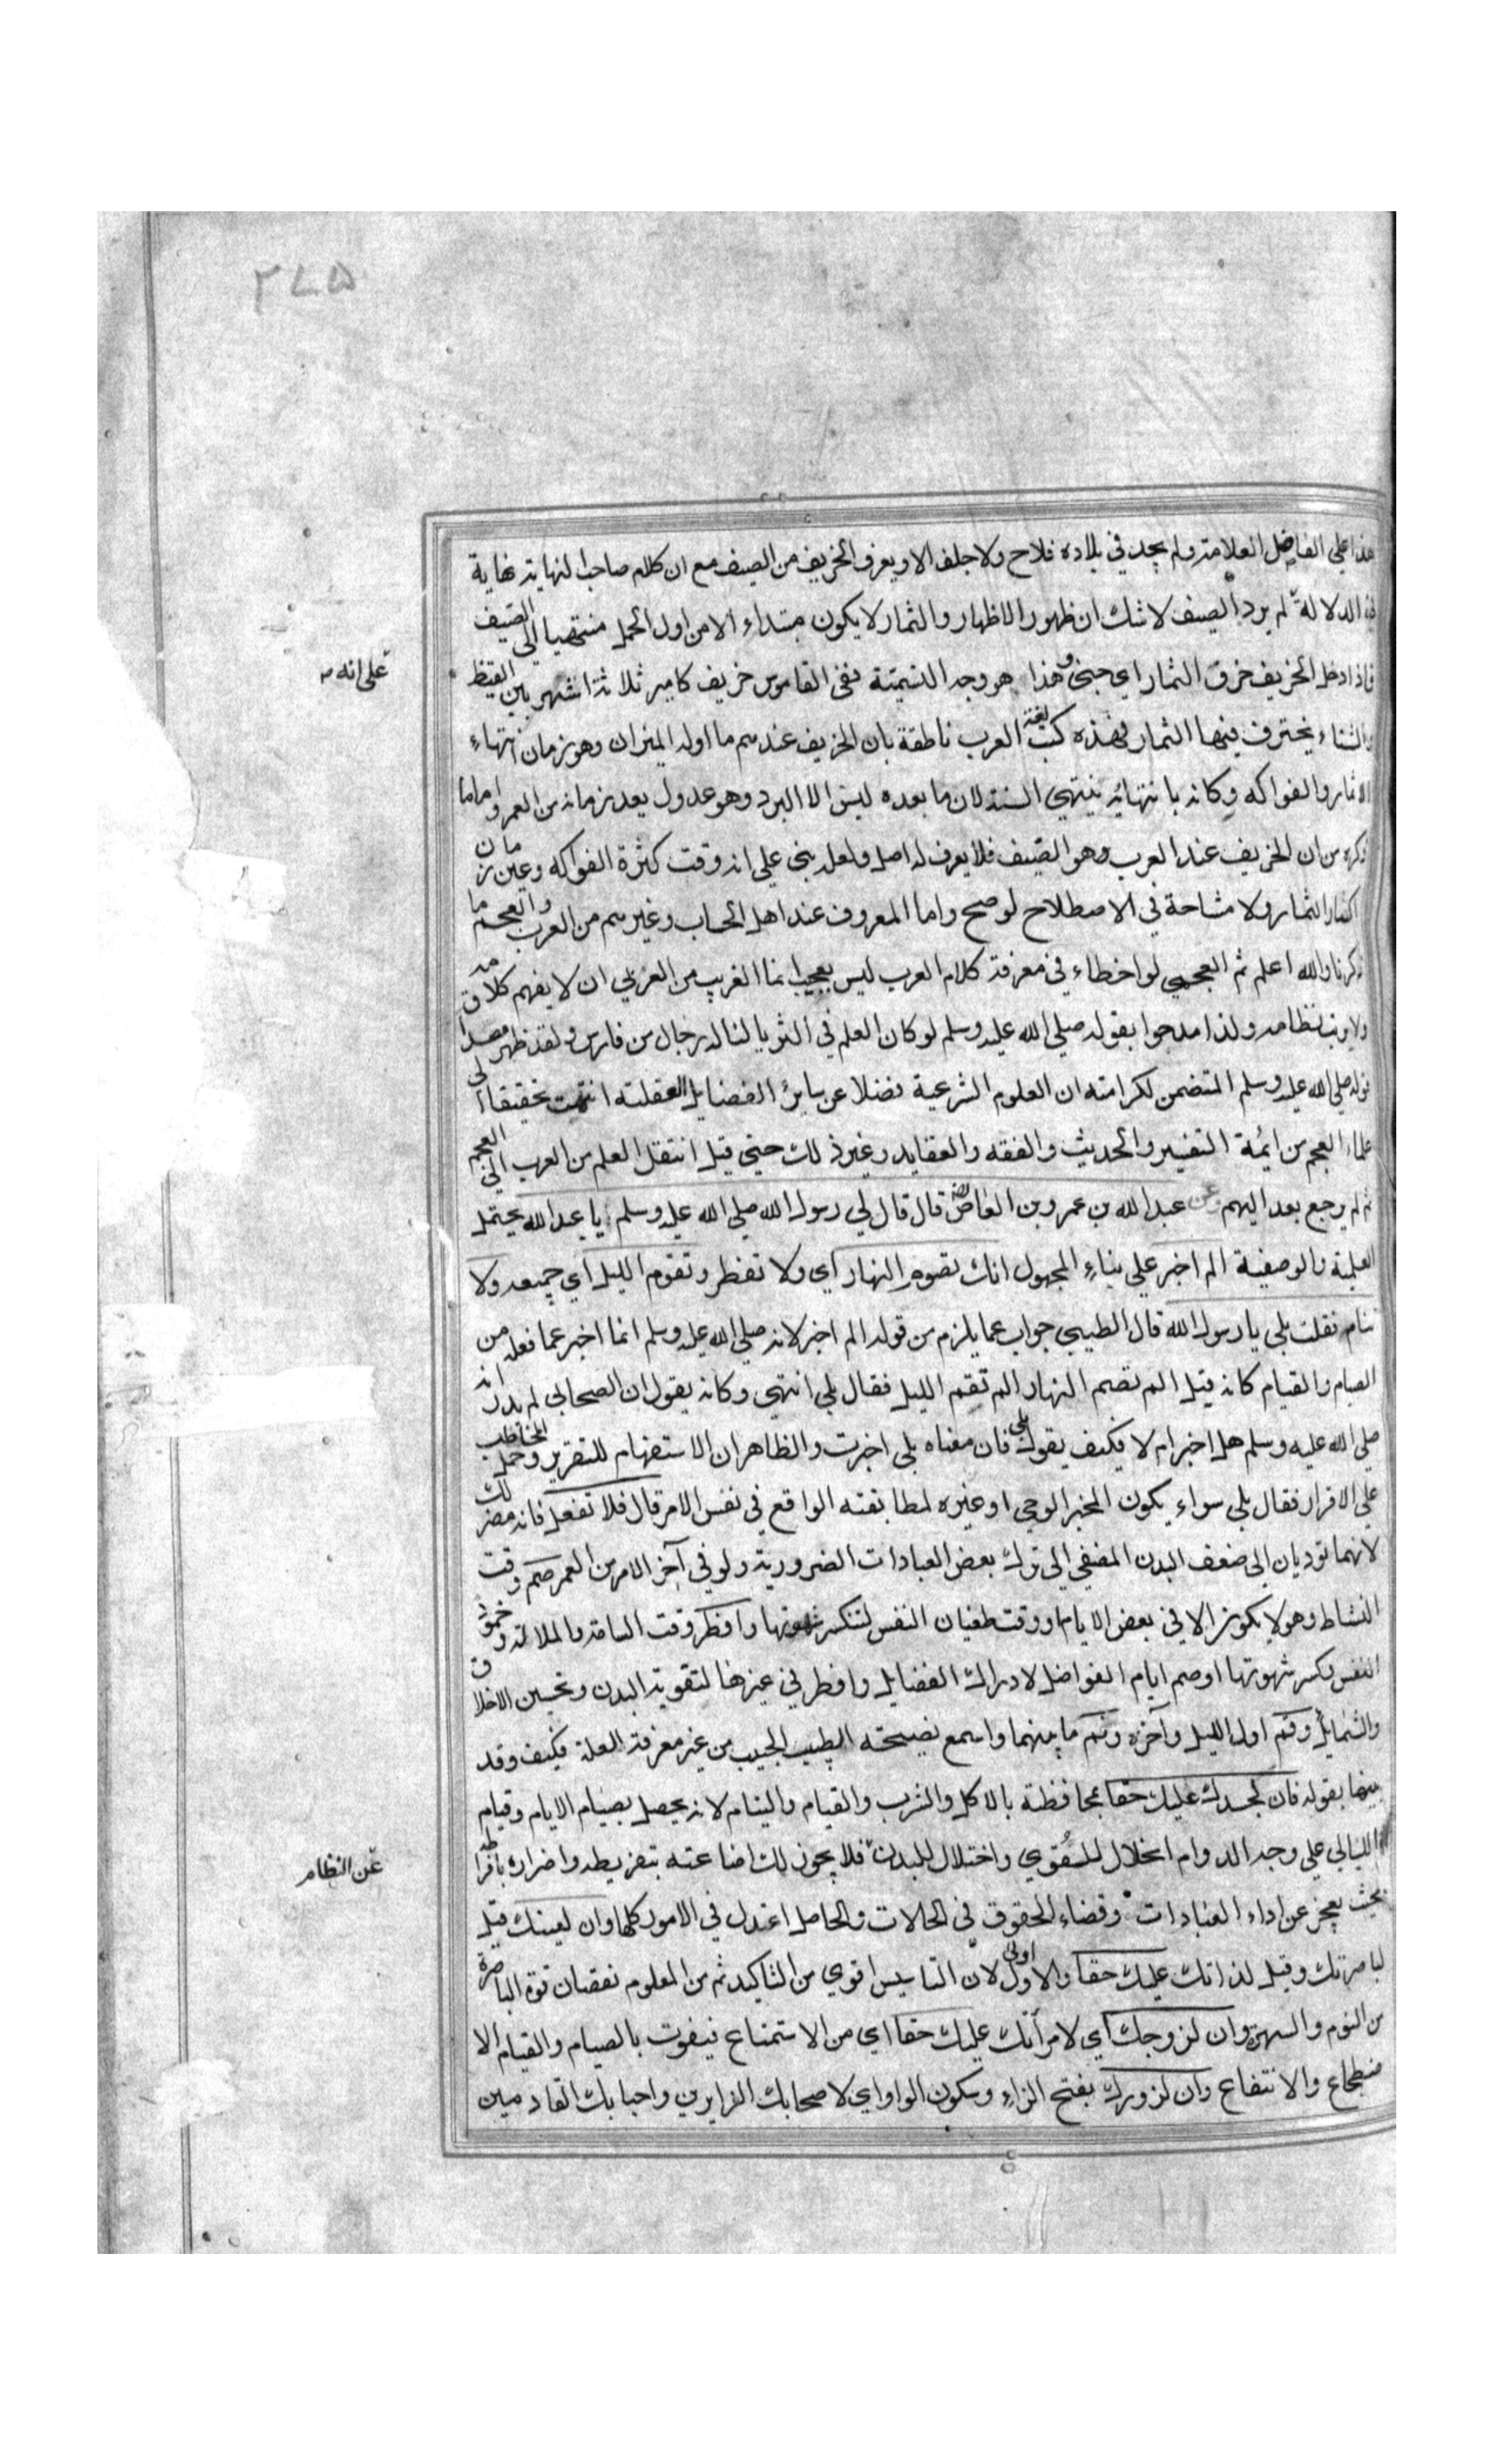 ٢٧٥
هذا على الفاضل العلامة ولم يجد في بلاده فلاح ولا جلف الا ويعرف الخريف من الصيف مع ان كلام صاحب النهاية نهاية
في الدلالة لم يرد الصيف لا شك ان ظهور الاظهار والثمار لا يكون مبتداء الا من اول الحمل منتهيا الى الصيف
على انه
فاذا دخل الخريف خرف الثمار اي جنى وهذا هو وجه التسمية ففي القاموس خريف كامير ثلاثة اشهر بين القيظ
والشتاء يخترف فيها الثمار فهذه كتب لغة العرب ناطقة بان الخريف عندهم ما اوله الميزان وهو زمان انتهاء
الاثمار والفواكه وكانه بانتهائه ينتهي السنة لان ما بعده ليس الا البرد وهو عدول يعد زمانه من العمر واما ما
ذكره من ان الخريف عند العرب وهو الصيف فلا يعرف له اصل ولعله بنى على انه وقت كثرة الفواكه وعين زمان
اكثار الثمار ولا مشاحة في الاصطلاح لو صح واما المعروف عند اهل الحساب وغيرهم من العرب والعجم ما
ذكرنا والله اعلم ثم العجمي لو اخطاء في معرفة كلام العرب ليس بعجيب انما الغريب من العربي ان لا يفهم كلامه
ولا نظامه ولذا مدحوا بقوله صلى الله عليه وسلم لو كان العلم في الثريا لناله رجال من فارس ولقد ظهر مصداق
قوله صلى الله عليه وسلم المتضمن لكرامته ان العلوم الشرعية فضلا عن سائر الفضايل العقلية انتهت تحقيقا الى
علماء العجم من ايمة التفسير والحديث والفقه والعقايد وغير ذلك حتى قيل انتقل العلم من العرب الى العجم
ثم لم يرجع بعد اليهم عن عبد الله بن عمرو بن العاص قال قال لي رسول الله صلى الله عليه وسلم يا عبد الله يحتمل
العلمية والوصفية الم اخبر على بناء المجهول انك تصوم النهار اي ولا تفطر وتقوم الليل اي جميعه ولا
تنام فقلت بلى يا رسول الله قال الطيبي جواب عما يلزم من قوله الم اخبر لانه صلى الله عليه وسلم انما اخبر عما فعله من
الصيام والقيام كانه قيل الم تصم النهار الم تقم الليل فقال بلى انتهى وكانه يقول ان الصحابي لم يدر انه
صلى الله عليه وسلم هل اخبر ام لا فكيف يقول بلى فان معناه بلى اخبرت والظاهر ان الاستفهام للتقرير وحمل المخاطب
على الاقرار فقال بلى سواء يكون المخبر الوحي او غيره لمطابقته الواقع في نفس الامر قال فلا تفعل فانه مضر لك
لانهما توديان الى ضعف البدن المفضي الى ترك بعض العبادات الضرورية ولو في آخر الامر من العمر صم وقت
النشاط وهو لا يكون الا في بعض الايام او وقت طغيان النفس لتنكسر شهوتها وافطر وقت السامة والملالة وخمود
النفس بكسر شهوتها او صم ايام الفواضل لادراك الفضايل وافطر في غيرها لتقوية البدن وتحسين الاخلاق
والشمايل وقم اول الليل وآخره ونم ما بينهما واسمع نصيحة الطبيب الحبيب من غير معرفة العلة فكيف وقد
بينها بقوله فان لجسدك عليك حقا بمحافظته بالاكل والشرب والقيام والنيام لانه يحصل بصيام الايام وقيام
الليالي على وجه الدوام انحلال للقوى واختلال للبدن فلا يجوز لك اضاعته بتفريطه واضراره بافراطه
عن النظام
بحيث يعجز عن اداء العبادات وقضاء الحقوق في الحالات والحاصل اعتدل في الامور كلها وان لعينك قيل
لباصرتك وقيل لذاتك عليك حقا والاول اولى لان التاسيس اقوى من التاكيد ثم من المعلوم نقصان قوة الباصرة
من النوم والسهر وان لزوجك اي لامرأتك عليك حقا اي من الاستمتاع فيفوت بالصيام والقيام الا
ضطجاع والانتفاع وان لزورك بفتح الزاء وسكون الواو اي لاصحابك الزايرين واحبابك القادمين